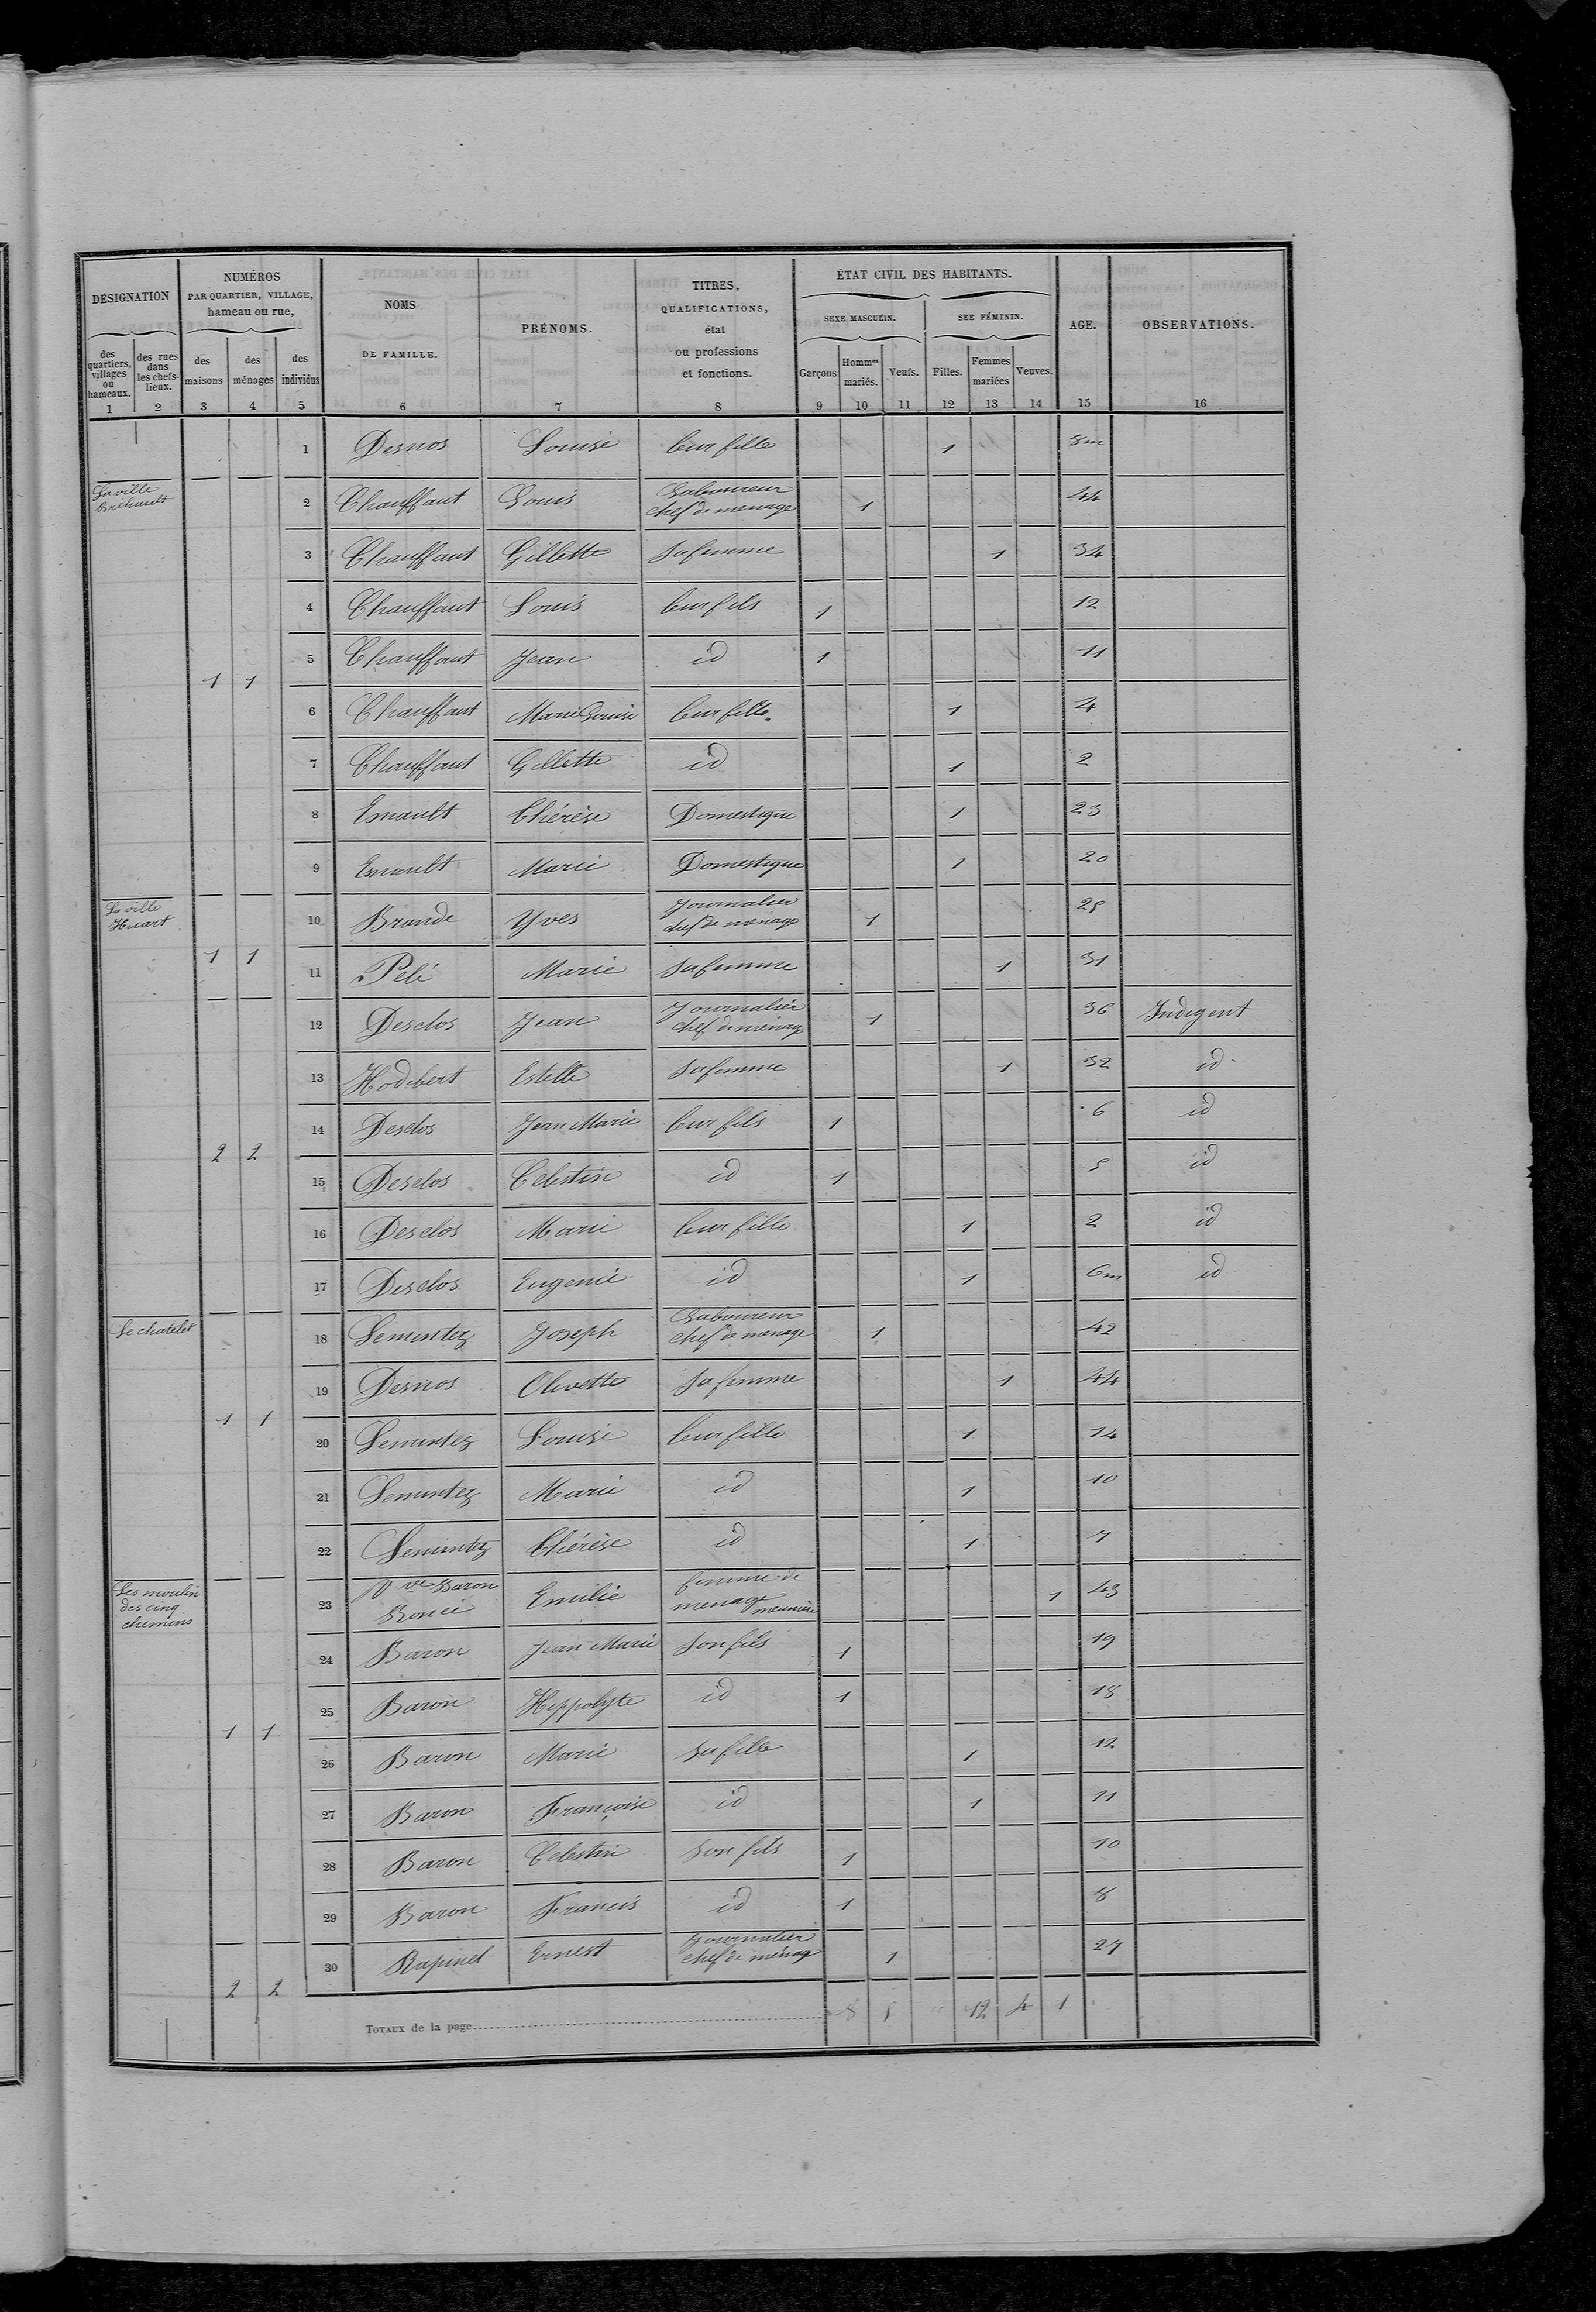 DÉSIGNATION
des quartiers, villages ou hameaux.
des rues dans les chefs-lieux.
NUMÉROS
PAR QUARTIER, VILLAGE,
hameau ou rue,
des maisons
des ménages
des individus
NOMS
DE FAMILLE.
PRÉNOMS.
TITRES,
QUALIFICATIONS,
état
ou professions
et fonctions.
ÉTAT CIVIL DES HABITANTS.
SEXE MASCULIN.
SEE FÉMININ.
Garçons
Hommes mariés.
Veufs.
Filles.
Femmes mariées
Veuves.
AGE.
OBSERVATIONS.
1 2 3 4 5 6 7 8 9 10 11 12 13 14 15 16
1 Desnos Louise leur fille 1 8m
La ville Bréhault
2 Chauffaut Louis Laboureur chef de menage 1 44
3 Chauffaut Gillette sa femme 1 34
4 Chauffaut Louis leur fils 1 12
5 Chauffaut Jean id 1 11
1 1
6 Chauffaut Marie Louise leur fille 1 4
7 Chauffaut Gillette id 1 2
8 Esnault Thérèse Domestique 1 23
9 Esnault Marie Domestique 1 20
La ville Huart
10 Brande Yves Journalier chef de menage 1 28
1 1
11 Pelé Marie sa femme 1 31
12 Desclos Jean Journalier chef de ménage 1 36 Indigent
13 Hodebert Estelle sa femme 1 32 id
14 Desclos Jean Marie leur fils 1 6 id
2 2
15 Desclos Celestin id 1 5 id
16 Desclos Marie leur fille 1 2 id
17 Desclos Eugenie id 1 6m id
Le chatelet
18 Lemintez Joseph Laboureur chef de menage 1 42
19 Desnos Olivette sa femme 1 44
1 1
20 Lemintez Louise leur fille 1 14
21 Lemintez Marie id 1 10
22 Lemintez Thérèse id 1 7
Les moulin des cinq chemins
23 Vve Baron Emilie femme de menage meunière 1 43
24 Baron Jean Marie son fils 1 19
25 Baron Hippolyte id 1 18
1 1
26 Baron Marie sa fille 1 12
27 Baron Françoise id 1 11
28 Baron Celestin son fils 1 10
29 Baron Francis id 1 8
30 Rapinel Ernest Journalier chef de ménage 1 27
2 2
TOTAUX de la page 8 5 " 12 4 1